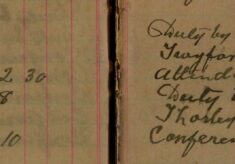 2 30
8
10
Duty by
Attend
Duty
Thorley
Conferen